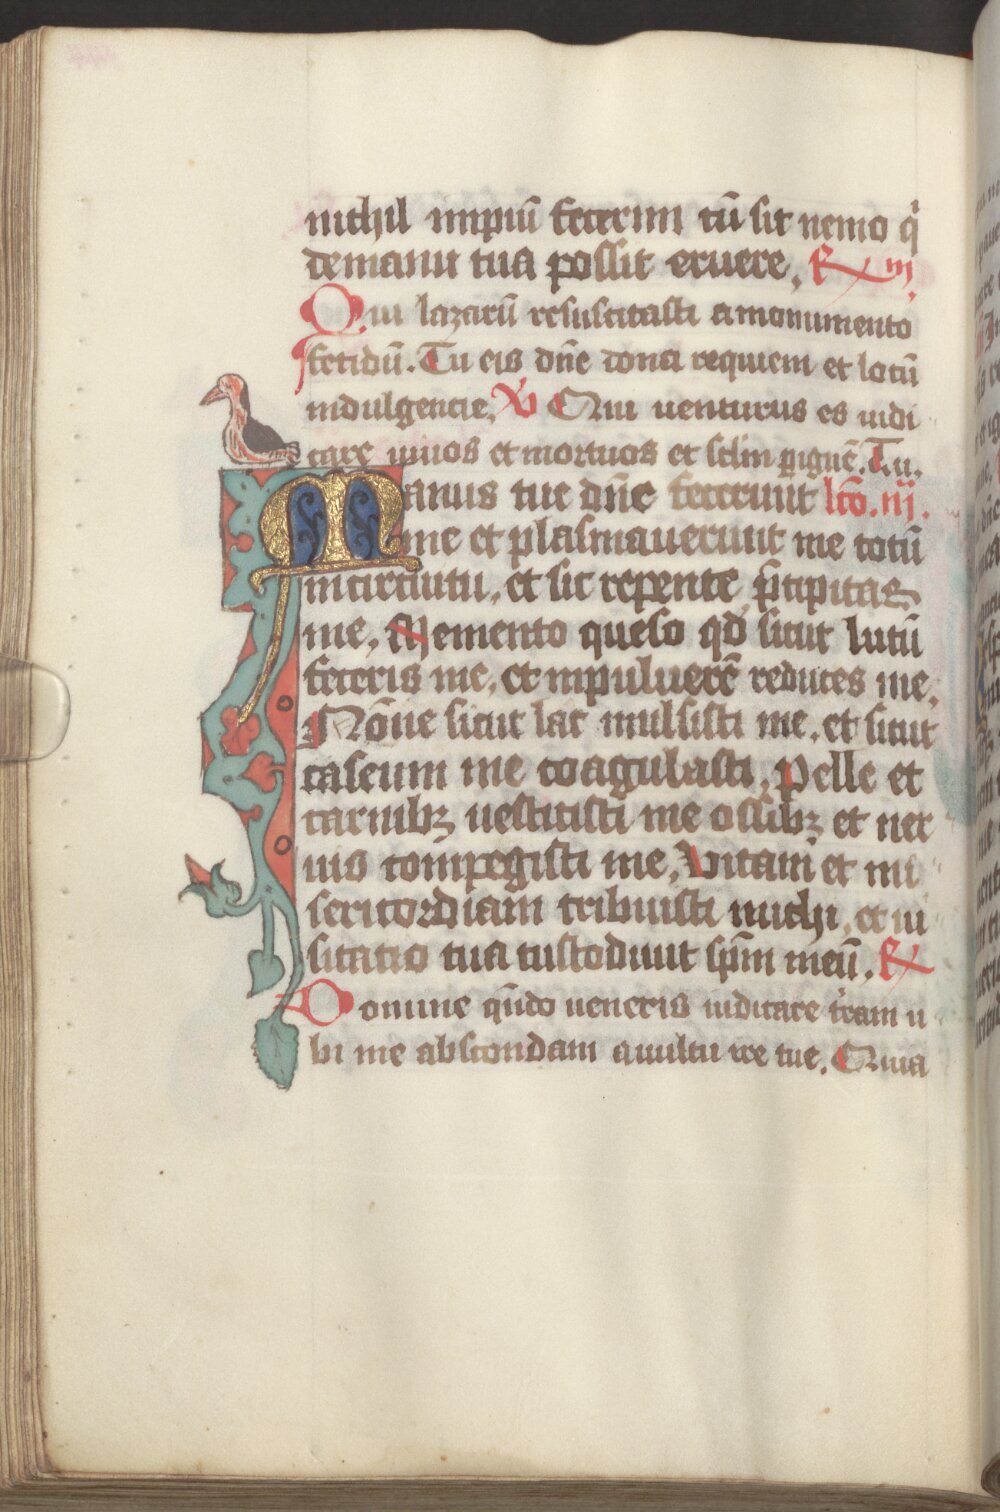 nichil impiū fecerim cū sit nemo q̇
demanu tua possit eruere. ℟ iij.
Qui lazarū resuscitasti amonumento
fetidū. Tu eis dn̄e dona requiem et locū
indulgencie. ℣ Qui uenturus es iudi
care uiuos et mortuos et sclm̄ ꝑ iguē. Tu.
Manus tue dn̄e fecerunt lc̄o. iij.
me et plasmauerunt me totū
incircuitu. et sic repente p̄cipitas
me. Memento queso qd̄ sicut lutū
feceris me. et inpuluerē reduces me.
Nōne sicut lac mulsisti me. et sicut
caseum me coagulasti. Pelle et
carnibꝫ uestitisti me ossibꝫ et ner
uis compegisti me. Vitam et mi
sericordiam tribuisti michi. et ui
sitatio tua custodiuit sp̄m meū. ℟
Domine qn̄do ueneris iudicare t̄ram u
bi me abscondam auultu ire tue. Quia